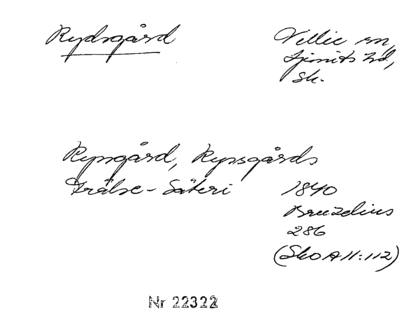 Rydsgård
Villie sn,
Ljunits hd,
Sk.
Rynsgård, Rynsgårds
Frälse-Säteri
1840
Bruzelius
286
(SkO A II:112)
Nr 22322